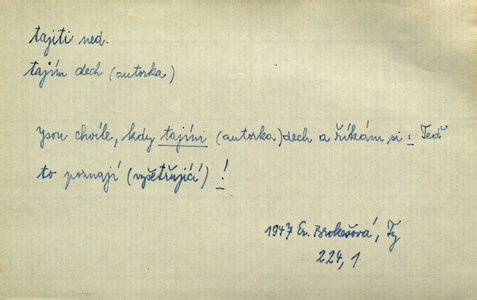 tajiti ned.
tajím dech (autorka)
Jsou chvíle, kdy tajím (autorka) dech a říkám si: Teď
to poznají (vyšetřující)!
1947 Ev. Brokešová, Ty
224, 1